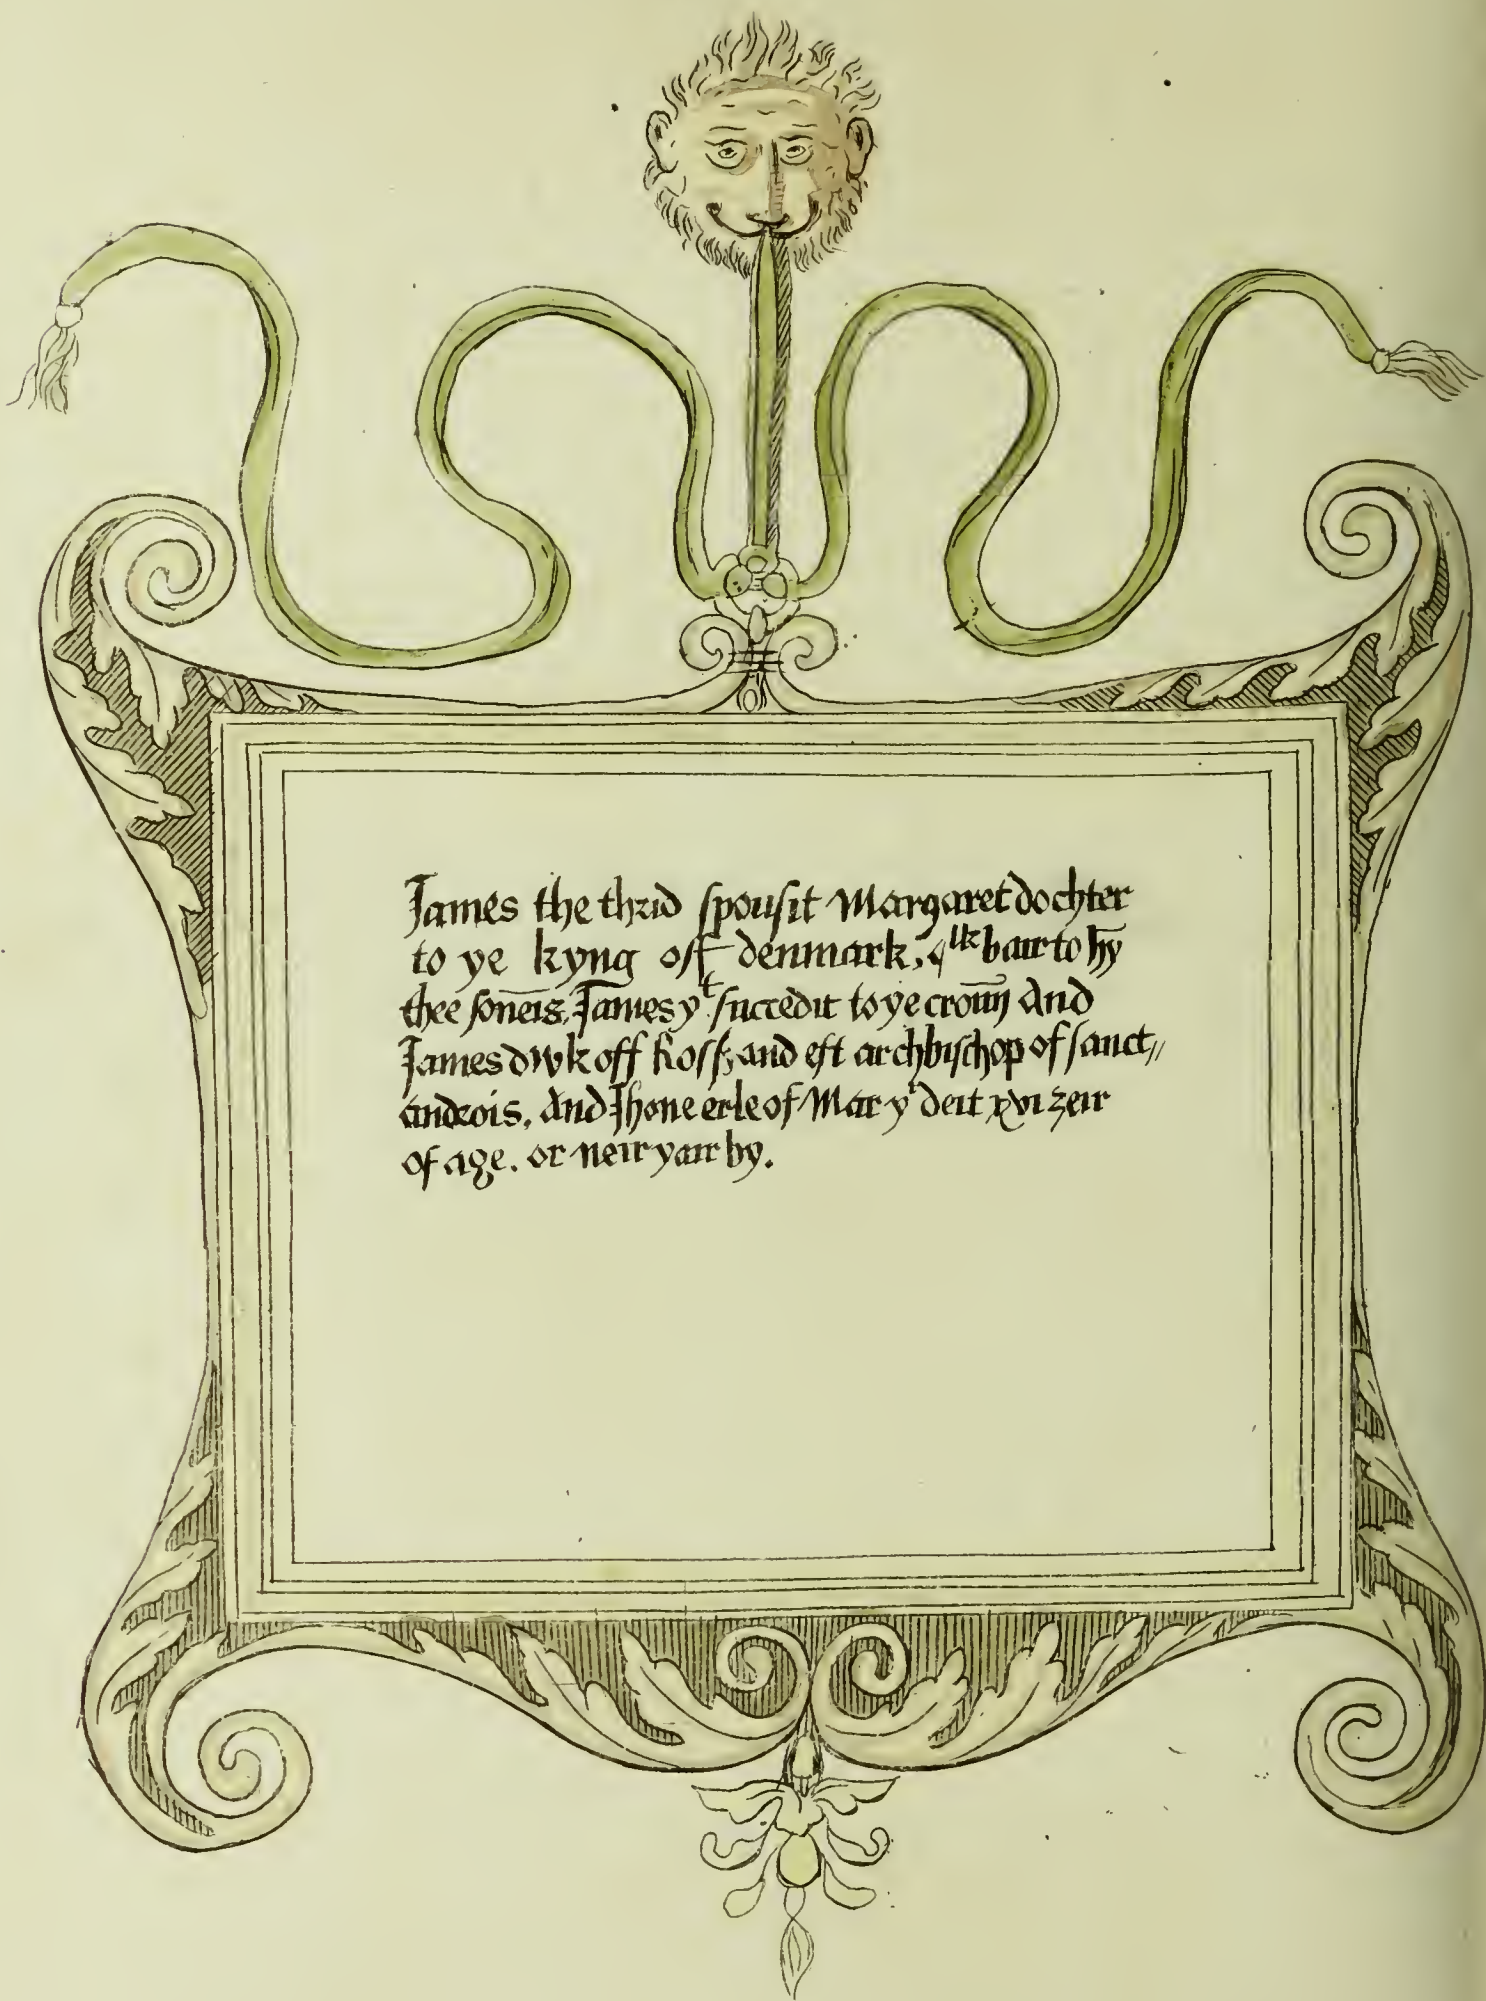 James the thrid spousit Margaret dochter
to ye kyng off denmark, qlk bair to hȳ
thee sonēis, James yt succedit to ye croūn And
James dwk off Ross, and eft archbischop of sanct„
androis, And Jhone erle of Mar yt deit xvi zeir
of age. or neir yair by.